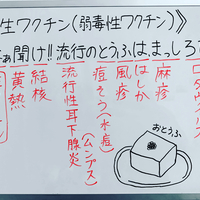 生ワクチン(弱毒性ワクチン)》
さぁ聞け!!流行のとうふは、まっしろ
麻疹
はしか
風疹
痘そう(水痘)
流行性耳下腺炎
(ムンプス)
結核
黄熱
おとうふ